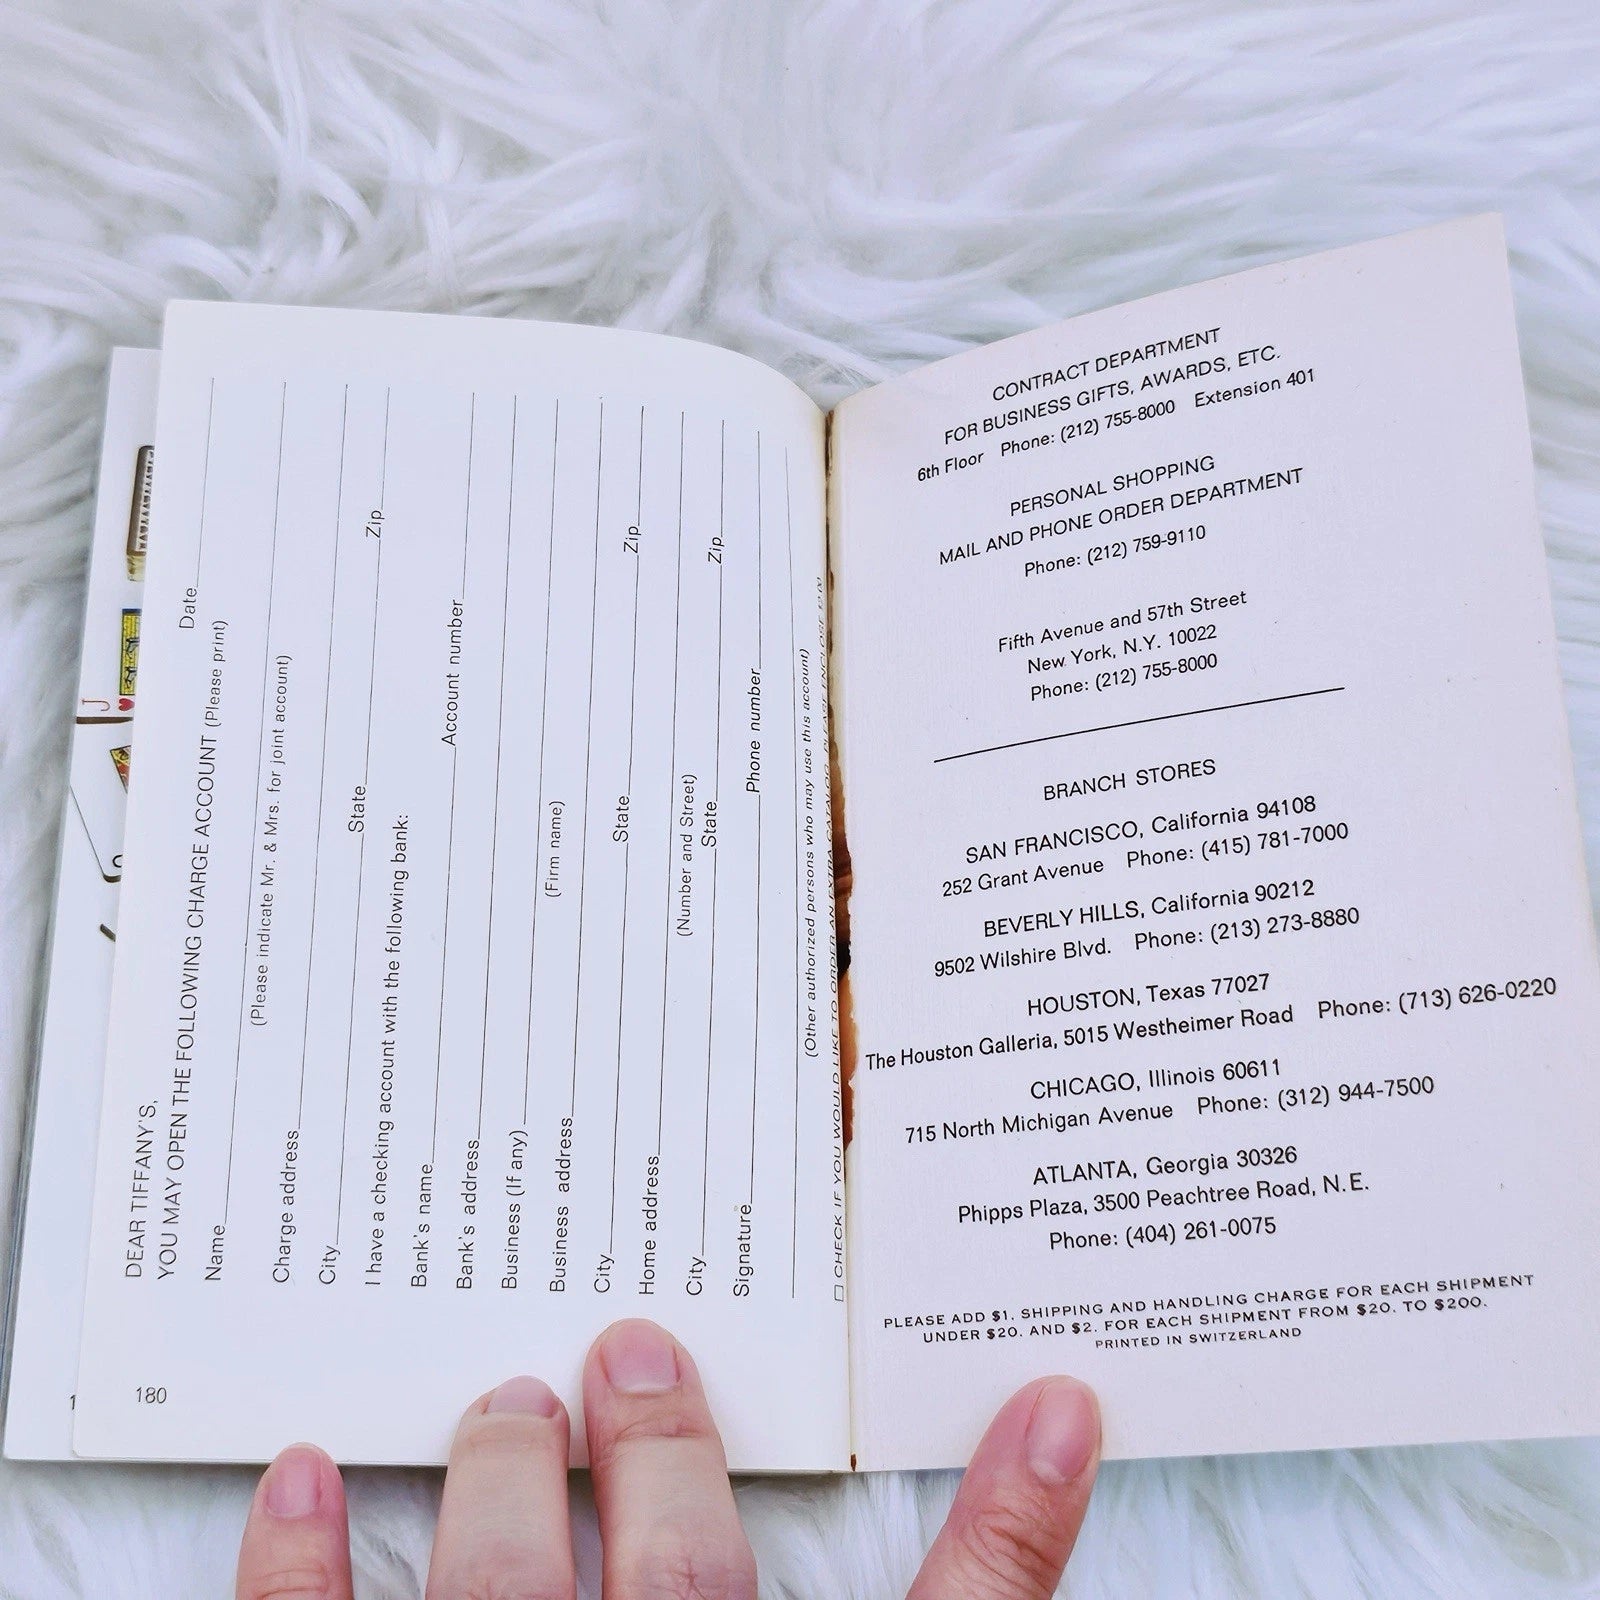 DEAR TIFFANY'S,
YOU MAY OPEN THE FOLLOWING CHARGE ACCOUNT (Please print)
Date
Name
(Please indicate Mr. & Mrs. for joint account)
Charge address
City State Zip
I have a checking account with the following bank:
Bank's name Account number
Bank's address
Business (If any)
(Firm name)
Business address
City State Zip
Home address
(Number and Street)
City State Zip
Signature Phone number
(Other authorized persons who may use this account)
CHECK IF YOU WOULD LIKE TO ORDER AN EXTRA CATALOG. PLEASE ENCLOSE
180
J
CONTRACT DEPARTMENT
FOR BUSINESS GIFTS, AWARDS, ETC.
6th Floor Phone: (212) 755-8000 Extension 401
PERSONAL SHOPPING
MAIL AND PHONE ORDER DEPARTMENT
Phone: (212) 759-9110
Fifth Avenue and 57th Street
New York, N.Y. 10022
Phone: (212) 755-8000
BRANCH STORES
SAN FRANCISCO, California 94108
252 Grant Avenue Phone: (415) 781-7000
BEVERLY HILLS, California 90212
9502 Wilshire Blvd. Phone: (213) 273-8880
HOUSTON, Texas 77027
The Houston Galleria, 5015 Westheimer Road Phone: (713) 626-0220
CHICAGO, Illinois 60611
715 North Michigan Avenue Phone: (312) 944-7500
ATLANTA, Georgia 30326
Phipps Plaza, 3500 Peachtree Road, N.E.
Phone: (404) 261-0075
PLEASE ADD $1. SHIPPING AND HANDLING CHARGE FOR EACH SHIPMENT
UNDER $20. AND $2. FOR EACH SHIPMENT FROM $20. TO $200.
PRINTED IN SWITZERLAND